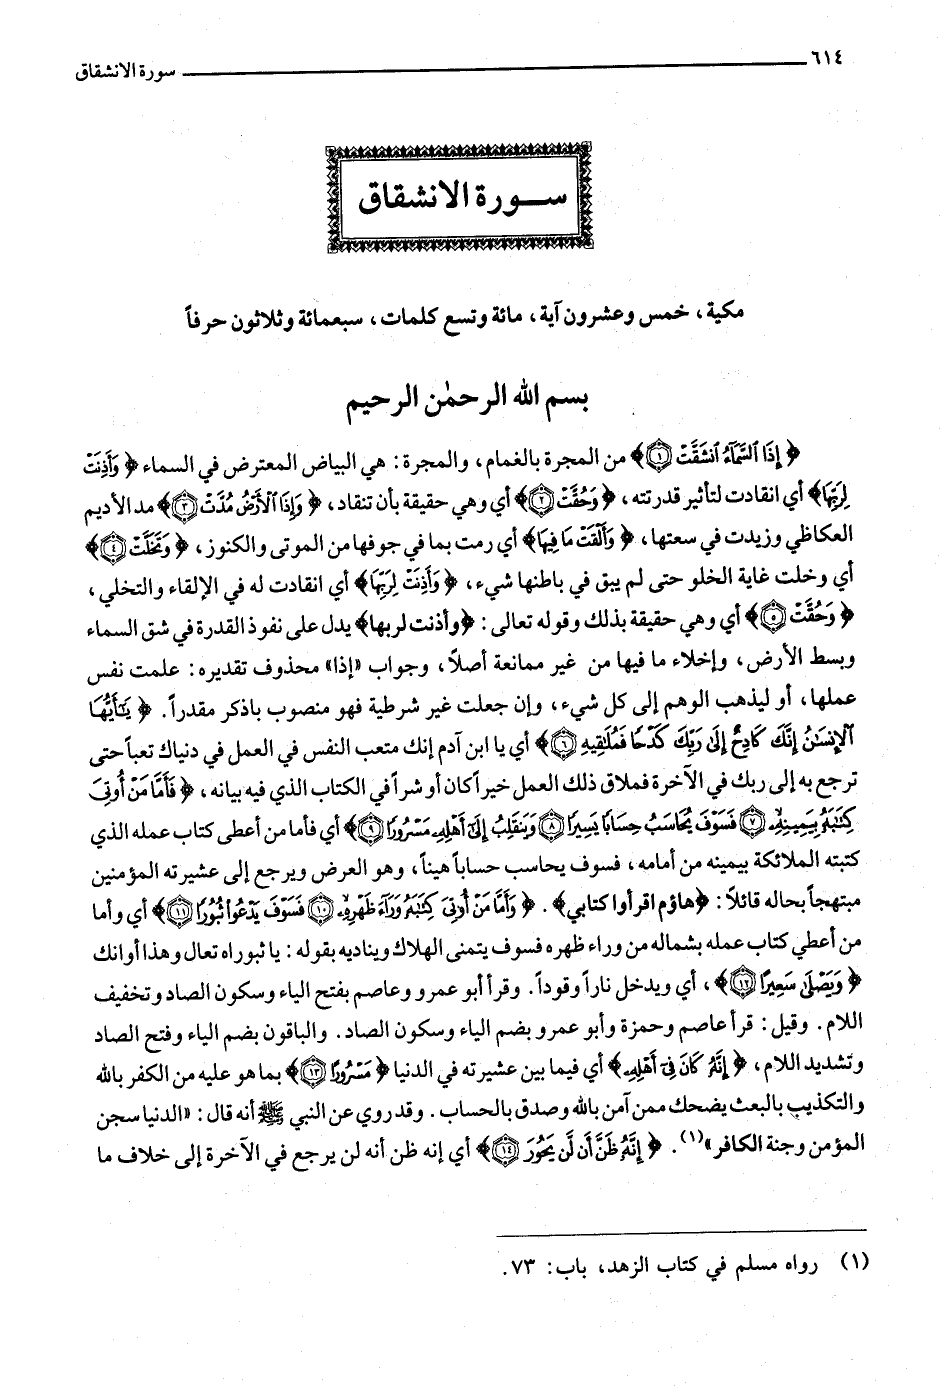 ٦١٤ سورة الانشقاق
سورة الانشقاق
مكية، خمس وعشرون آية، مائة وتسع كلمات، سبعمائة وثلاثون حرفاً
بسم الله الرحمٰن الرحيم
﴿ إِذَا ٱلسَّمَآءُ ٱنشَقَّتۡ ١﴾ من المجرة بالغمام، والمجرة: هي البياض المعترض في السماء ﴿ وَأَذِنَتۡ
لِرَبِّهَا﴾ أي انقادت لتأثير قدرته، ﴿وَحُقَّتۡ ٢﴾ أي وهي حقيقة بأن تنقاد، ﴿ وَإِذَا ٱلۡأَرۡضُ مُدَّتۡ ٣﴾ مد الأديم
العكاظي وزيدت في سعتها، ﴿ وَأَلۡقَتۡ مَا فِيهَا﴾ أي رمت بما في جوفها من الموتى والكنوز، ﴿ وَتَخَلَّتۡ ٤﴾
أي وخلت غاية الخلو حتى لم يبق في باطنها شيء، ﴿ وَأَذِنَتۡ لِرَبِّهَا﴾ أي انقادت له في الإلقاء والتخلي،
﴿ وَحُقَّتۡ ٥﴾ أي وهي حقيقة بذلك وقوله تعالى: ﴿وأذنت لربها﴾ يدل على نفوذ القدرة في شق السماء
وبسط الأرض، وإخلاء ما فيها من غير ممانعة أصلاً، وجواب «إذا» محذوف تقديره: علمت نفس
عملها، أو ليذهب الوهم إلى كل شيء، وإن جعلت غير شرطية فهو منصوب باذكر مقدراً. ﴿ يَٰٓأَيُّهَا
ٱلۡإِنسَٰنُ إِنَّكَ كَادِحٌ إِلَىٰ رَبِّكَ كَدۡحٗا فَمُلَٰقِيهِ ٦﴾ أي يا ابن آدم إنك متعب النفس في العمل في دنياك تعباً حتى
ترجع به إلى ربك في الآخرة فملاق ذلك العمل خيراً كان أو شراً في الكتاب الذي فيه بيانه، ﴿ فَأَمَّا مَنۡ أُوتِيَ
كِتَٰبَهُۥ بِيَمِينِهِۦ ٧ فَسَوۡفَ يُحَاسَبُ حِسَابٗا يَسِيرٗا ٨ وَيَنقَلِبُ إِلَىٰٓ أَهۡلِهِۦ مَسۡرُورٗا ٩﴾ أي فأما من أعطى كتاب عمله الذي
كتبته الملائكة بيمينه من أمامه، فسوف يحاسب حساباً هيناً، وهو العرض ويرجع إلى عشيرته المؤمنين
مبتهجاً بحاله قائلاً: ﴿هاؤم اقرأوا كتابي﴾. ﴿ وَأَمَّا مَنۡ أُوتِيَ كِتَٰبَهُۥ وَرَآءَ ظَهۡرِهِۦ ١٠ فَسَوۡفَ يَدۡعُواْ ثُبُورٗا ١١﴾ أي وأما
من أعطي كتاب عمله بشماله من وراء ظهره فسوف يتمنى الهلاك ويناديه بقوله: يا ثبوراه تعال وهذا أوانك
﴿ وَيَصۡلَىٰ سَعِيرًا ١٢﴾، أي ويدخل ناراً وقوداً. وقرأ أبو عمرو وعاصم بفتح الياء وسكون الصاد وتخفيف
اللام. وقيل: قرأ عاصم وحمزة وأبو عمرو بضم الياء وسكون الصاد. والباقون بضم الياء وفتح الصاد
وتشديد اللام، ﴿ إِنَّهُۥ كَانَ فِيٓ أَهۡلِهِۦ﴾ أي فيما بين عشيرته في الدنيا ﴿ مَسۡرُورًا ١٣﴾ بما هو عليه من الكفر بالله
والتكذيب بالبعث يضحك ممن آمن بالله وصدق بالحساب. وقد روي عن النبي ﷺ أنه قال: «الدنيا سجن
المؤمن وجنة الكافر»(١). ﴿ إِنَّهُۥ ظَنَّ أَن لَّن يَحُورَ ١٤﴾ أي إنه ظن أنه لن يرجع في الآخرة إلى خلاف ما
(١) رواه مسلم في كتاب الزهد، باب: ٧٣.